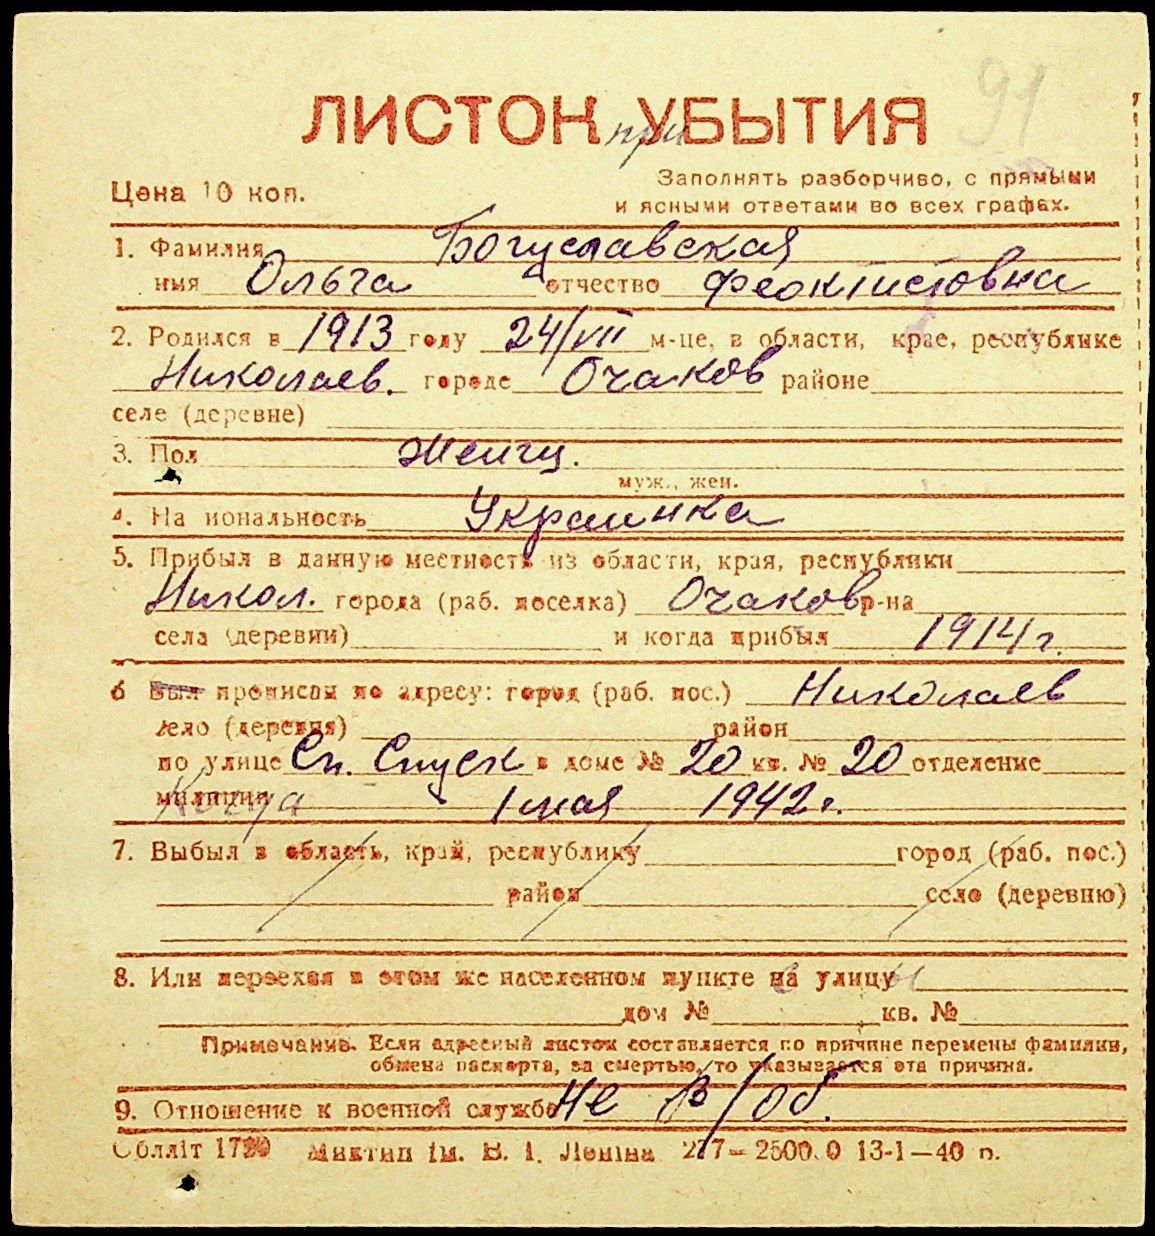 91
ЛИСТОК при УБЫТИЯ
Цена 10 коп.
Заполнять разборчиво, с прямыми
и ясными ответами во всех графах.
1. Фамилия Богуславская
имя Ольга отчество Феоктистовна
2. Родился в 1913 году 24/VII м-це, в области, крае, республике
Николаев. городе Очаков районе
селе (деревне)
3. Пол Женщ.
муж., жен.
4. На иональность Украинка
5. Прибыл в данную местность из области, края, республики
Никол. города (раб. поселка) Очаков р-на
села (деревни) и когда прибыл 1914 г.
6 Был прописан по адресу: город (раб. пос.) Николаев
село (деревня) район
по улице Сп. Спуск в доме № 20 кв. № 20 отделение
милиции Когда 1 мая 1942 г.
7. Выбыл в область, край, республику город (раб. пос.)
район село (деревню)
8. Или переехал в этом же населенном пункте на улицу
дом № кв. №
Примечание. Если адресный листок составляется по причине перемены фамилии,
обмена паспорта, за смертью, то указывается эта причина.
9. Отношение к военной службе Не в/об.
Облліт 1790 Миктип ім. В. І. Леніна 277—2500.0 13-1—40 п.